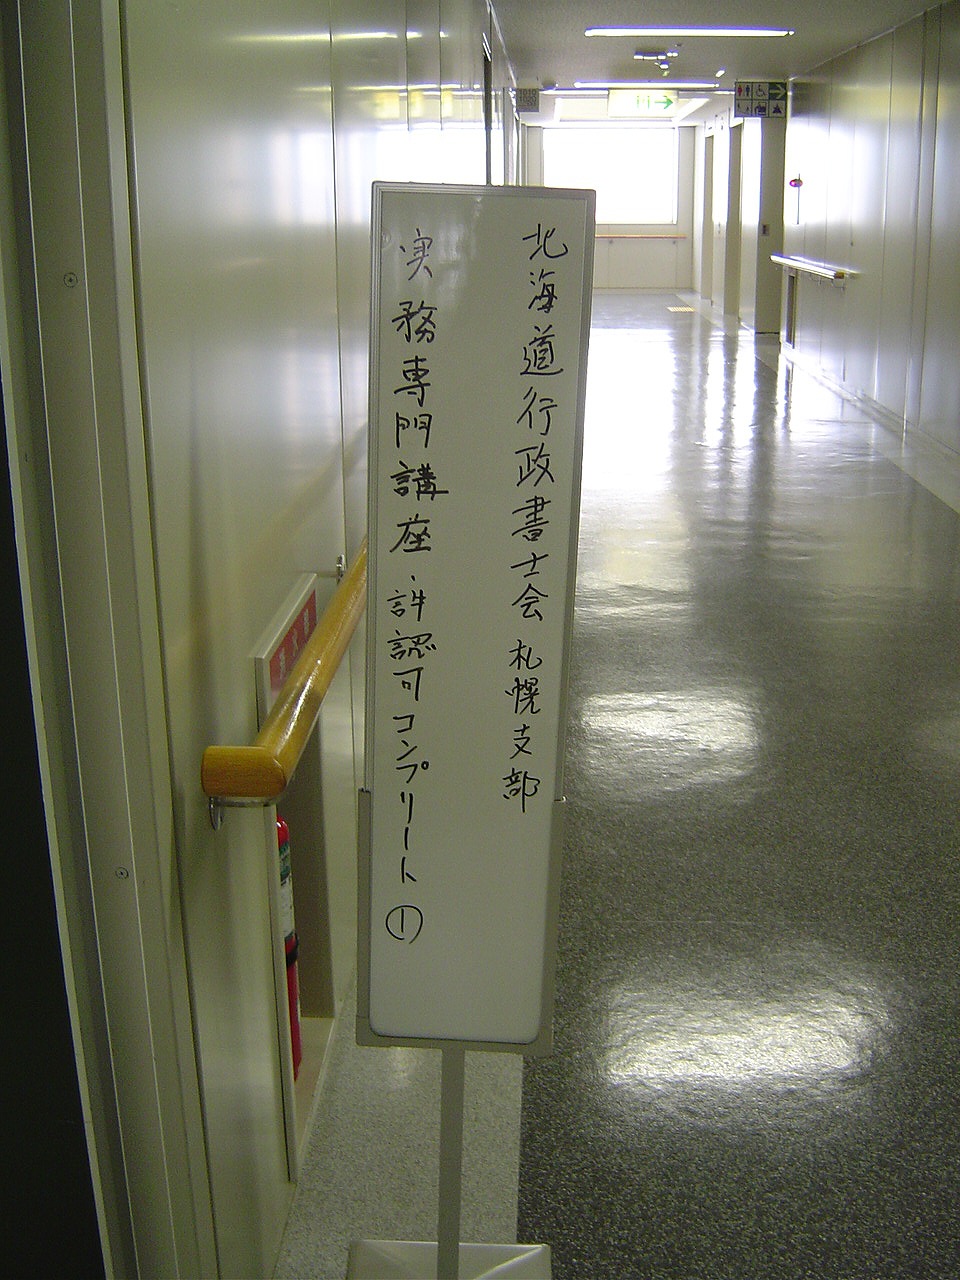 北海道行政書士会 札幌支部
実務専門講座 許認可コンプリート ①